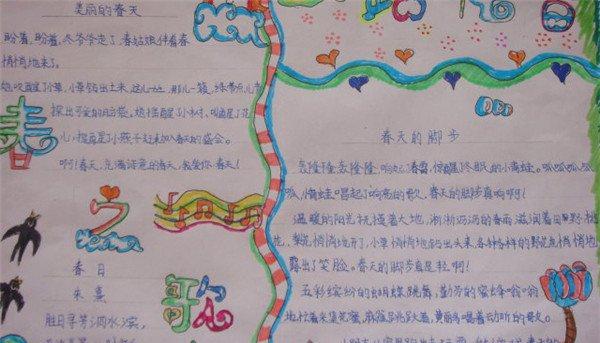 美丽的春天
盼着,盼着,冬爷爷走了,春姑娘伴着春
悄悄地来了。
她吹醒了小草,小草钻出土来,这儿一丛,那儿一簇,绿
探出可爱的脑袋。她摇醒了小树,叫醒了花
儿,提醒了小燕子赶来加入春天的盛会。
啊!春天,充满诗意的春天,我爱你春天!
春
之
歌
春日
朱熹
胜日寻芳泗水滨,
春天的脚步
轰隆隆轰隆隆,响起了春雷,惊醒了冬眠的小青蛙。呱呱呱呱
呱,青蛙唱起了响亮的歌。春天的脚步真响啊!
温暖的阳光抚摸着大地,淅淅沥沥的春雨滋润着田野
梨花悄悄地开了,小草悄悄地钻出头来,各种各样的野花也悄悄地
露出了笑脸。春天的脚步真是轻啊!
五彩缤纷的蝴蝶跳舞,勤劳的蜜蜂嗡嗡
地忙着采集花蜜,麻雀跳跳大道,黄鹂鸟唱着动听的歌。